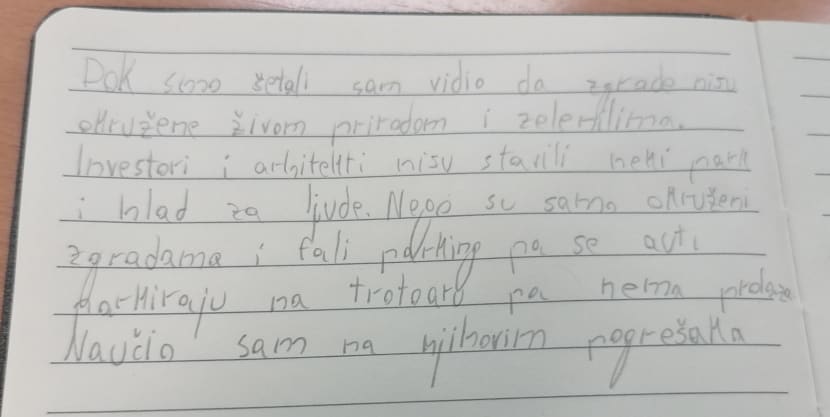 Dok smo šetali sam vidio da zgrade nisu
okružene živom prirodom i zelenilima.
Investori i arhitekti nisu stavili neki park
i hlad za ljude. Nego su samo okruženi
zgradama i fali parking pa se auti
parkiraju na trotoare pa nema prolaza
Naučio sam na njihovim pogrešaka